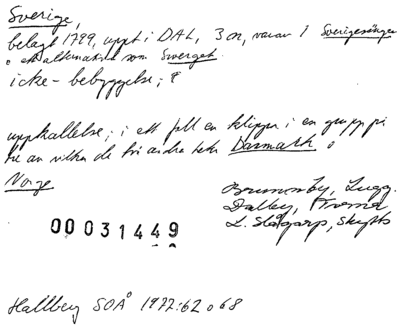 Sverige,
belagt 1799, uppt i DAL, 3 or, varav 1 Sverigesängen
o ett alternativt som Sverget.
icke-bebyggelse; ?
uppkallelse; i ett fall en klippa i en grupp på
tre av vilka de två andra heter Danmark o
Norge
Brunnby, Lugg.
Dalby, Torna
L. Slågarp, Skytts
00031449
Hallberg SOÅ 1977:62 o 68